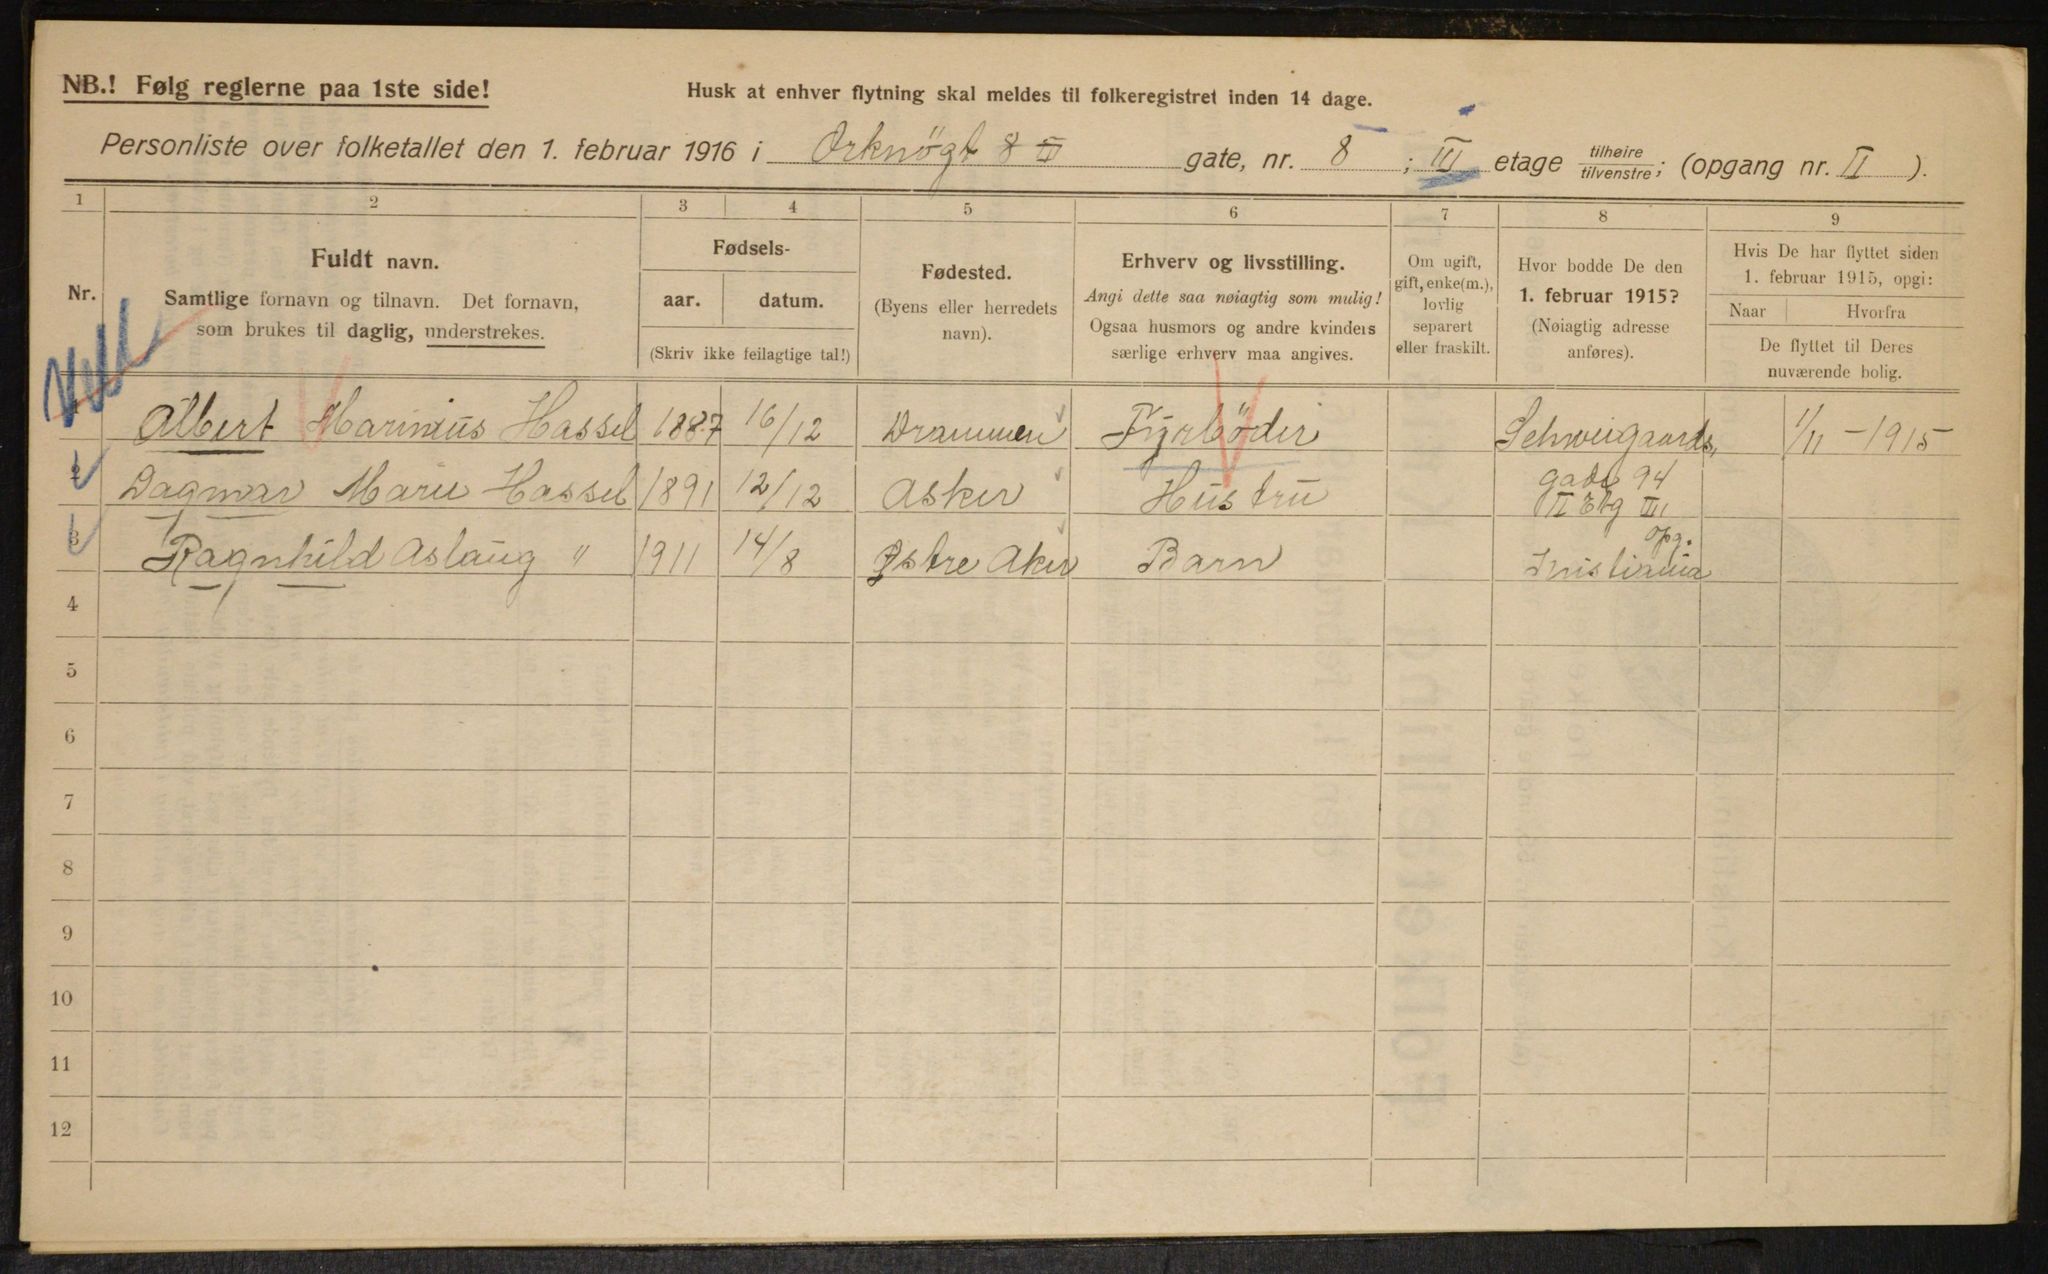 NB.! Følg reglerne paa 1ste side!
Husk at enhver flytning skal meldes til folkeregistret inden 14 dage.
Personliste over folketallet den 1. februar 1916 i Orknögt 8 II gate, nr. 8 ; III etage tilhøire / tilvenstre ; (opgang nr. II ).
1 2 3 4 5 6 7 8 9
Nr.
Fuldt navn.
Samtlige fornavn og tilnavn. Det fornavn,
som brukes til daglig, understrekes.
Fødsels-
aar. datum.
(Skriv ikke feilagtige tal!)
Fødested.
(Byens eller herredets
navn).
Erhverv og livsstilling.
Angi dette saa nøiagtig som mulig!
Ogsaa husmors og andre kvinders
særlige erhverv maa angives.
Om ugift,
gift, enke(m.),
lovlig
separert
eller fraskilt.
Hvor bodde De den
1. februar 1915?
(Nøiagtig adresse
anføres).
Hvis De har flyttet siden
1. februar 1915, opgi:
Naar Hvorfra
De flyttet til Deres
nuværende bolig.
Albert Marinius Hassel 1887 16/12 Drammen Fyrböder Schweigaards 1/11 - 1915
2 Dagmar Marie Hassel 1891 12/12 Asker Hustru gade 94
II Etg III
3 Ragnhild Aslaug " 1911 14/8 Østre Aker Barn opg.
Kristiania
4
5
6
7
8
9
10
11
12